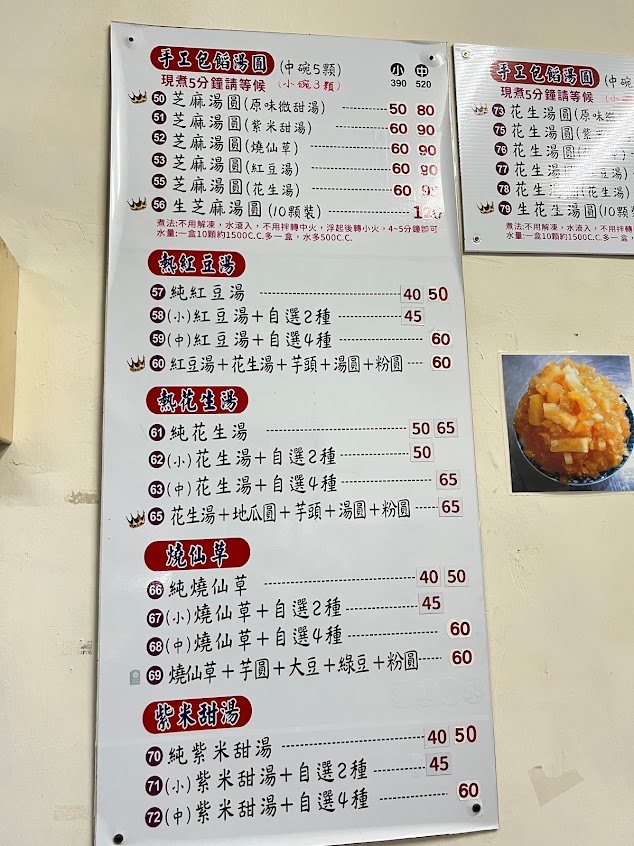 手工包餡湯圓 (中碗5顆) 小 中
現煮5分鐘請等候 (小碗3顆) 390 520
50 芝麻湯圓(原味微甜湯) 50 80
51 芝麻湯圓(紫米甜湯) 60 90
52 芝麻湯圓(燒仙草) 60 90
53 芝麻湯圓(紅豆湯) 60 90
55 芝麻湯圓(花生湯) 60
56 生芝麻湯圓(10顆裝)
煮法:不用解凍,水滾入,不用拌轉中火,浮起後轉小火,4~5分鐘即可
水量:一盒10顆約1500C.C.多一盒,水多500C.C.
熱紅豆湯
57 純紅豆湯 40 50
58 (小)紅豆湯+自選2種 45
59 (中)紅豆湯+自選4種 60
60 紅豆湯+花生湯+芋頭+湯圓+粉圓 60
熱花生湯
61 純花生湯 50 65
62 (小)花生湯+自選2種 50
63 (中)花生湯+自選4種 65
65 花生湯+地瓜圓+芋頭+湯圓+粉圓 65
燒仙草
66 純燒仙草 40 50
67 (小)燒仙草+自選2種 45
68 (中)燒仙草+自選4種 60
69 燒仙草+芋圓+大豆+綠豆+粉圓 60
紫米甜湯
70 純紫米甜湯 40 50
71 (小)紫米甜湯+自選2種 45
72 (中)紫米甜湯+自選4種 60
手工包餡湯圓 (中碗
現煮5分鐘請等候 (小
73 花生湯圓(原味
75 花生湯圓(紫
76 花生湯圓
77 花生湯圓 豆湯)
78 花生湯圓(花生湯)
79 生花生湯圓(10顆
煮法:不用解凍,水滾入,不用拌轉中
水量:一盒10顆約1500C.C.多一盒